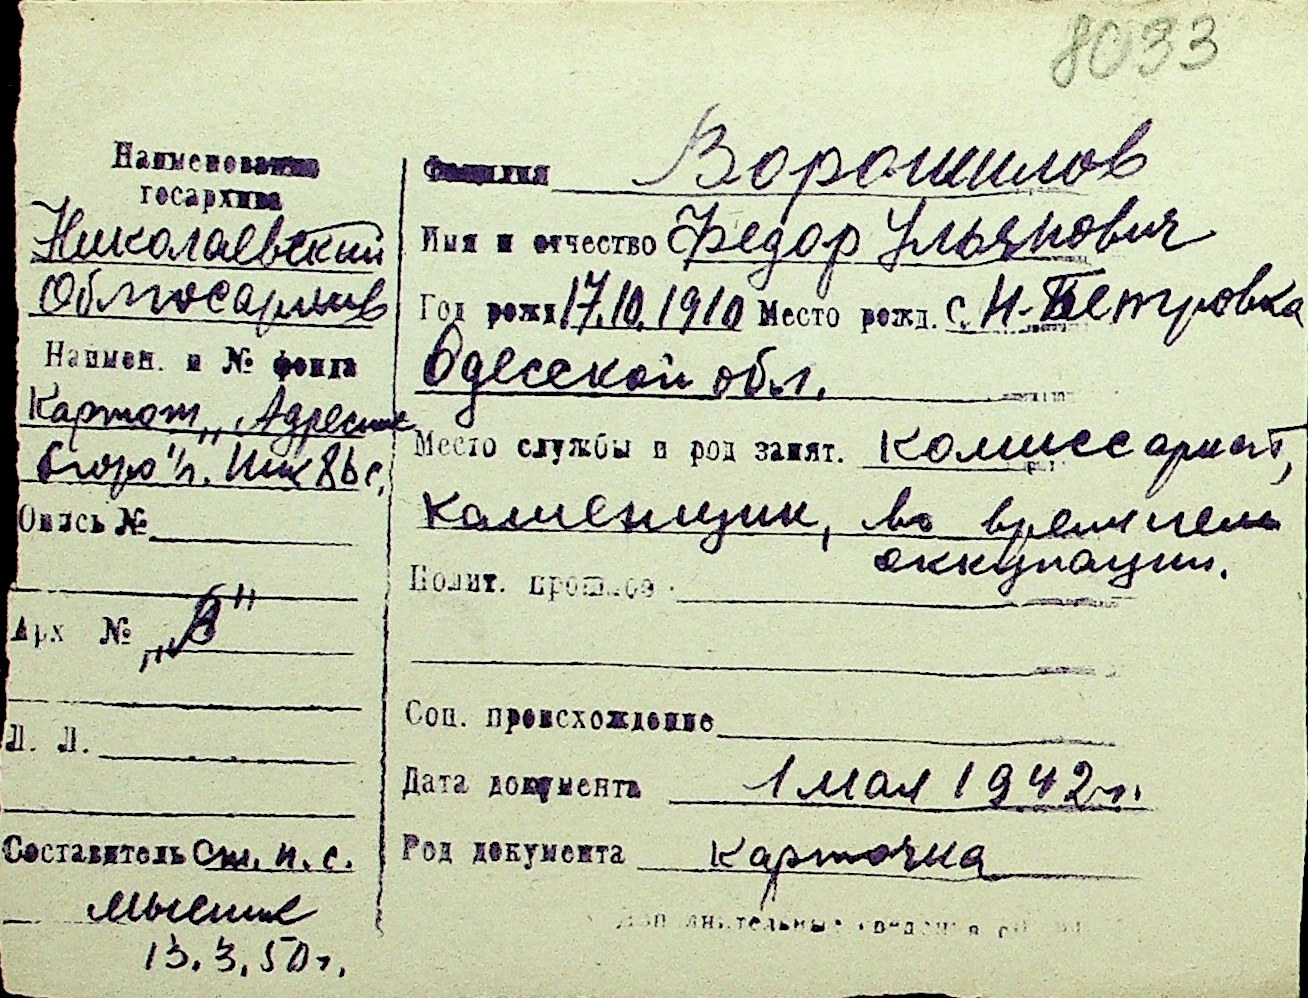 8033
Наименование
госархива
Николаевский
Облгосархив
Наимен. и № фонда
Картот. „Адресное
бюро" г.
Опись №
Арх №
„В"
Л. Л.
Составитель Ст. н. с.
13.3.50г.
Фамилия Ворошилов
Имя и отчество Федор Ульянович
Год рожд 17.10.1910 Место рожд. с. Н-Петровка
Одесской обл.
Место службы и род занят. Комиссариат,
каменщик, во время нем
оккупации.
Полит. прошлое
Соц. происхождение
Дата документа 1 мая 1942г.
Род документа карточка
Дополнительные сведения об